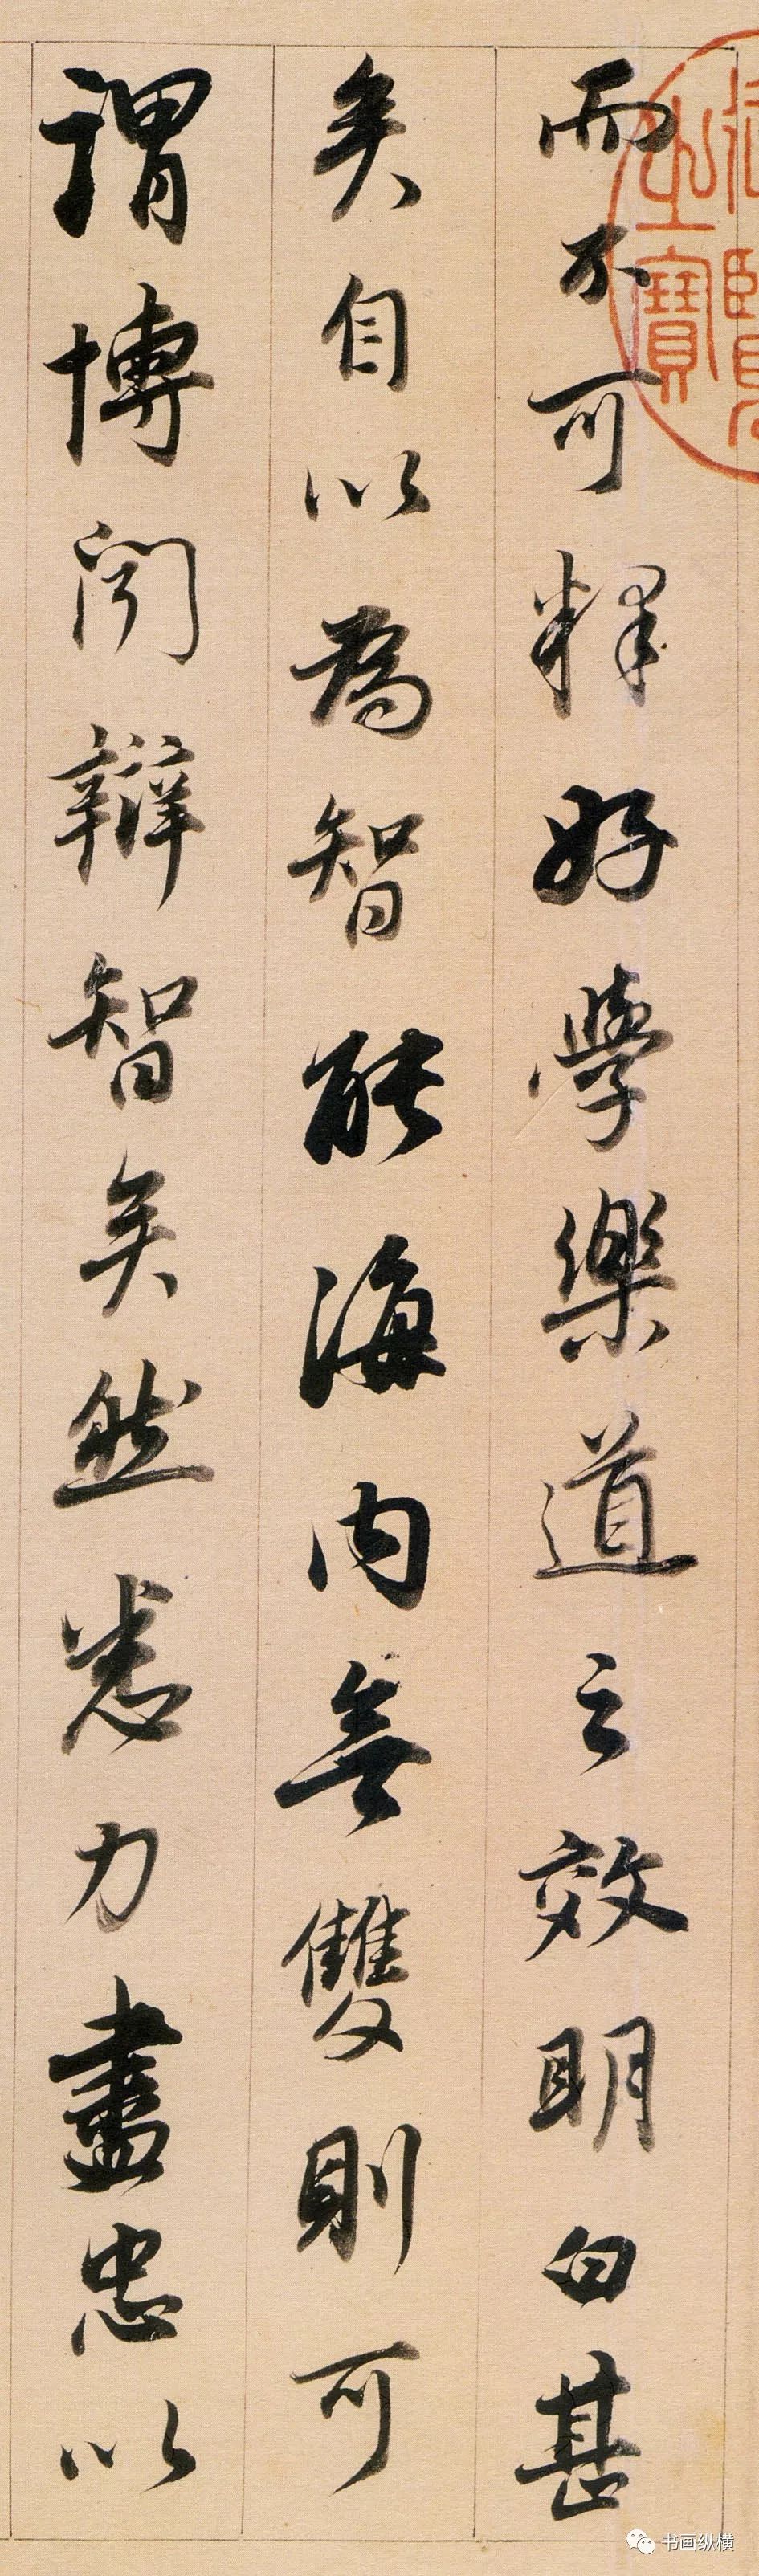 而不可釋好學樂道之效明白甚
矣自以為智能海內無雙則可
謂博聞辯智矣然悉力盡忠以
御覽之寶
书画纵横